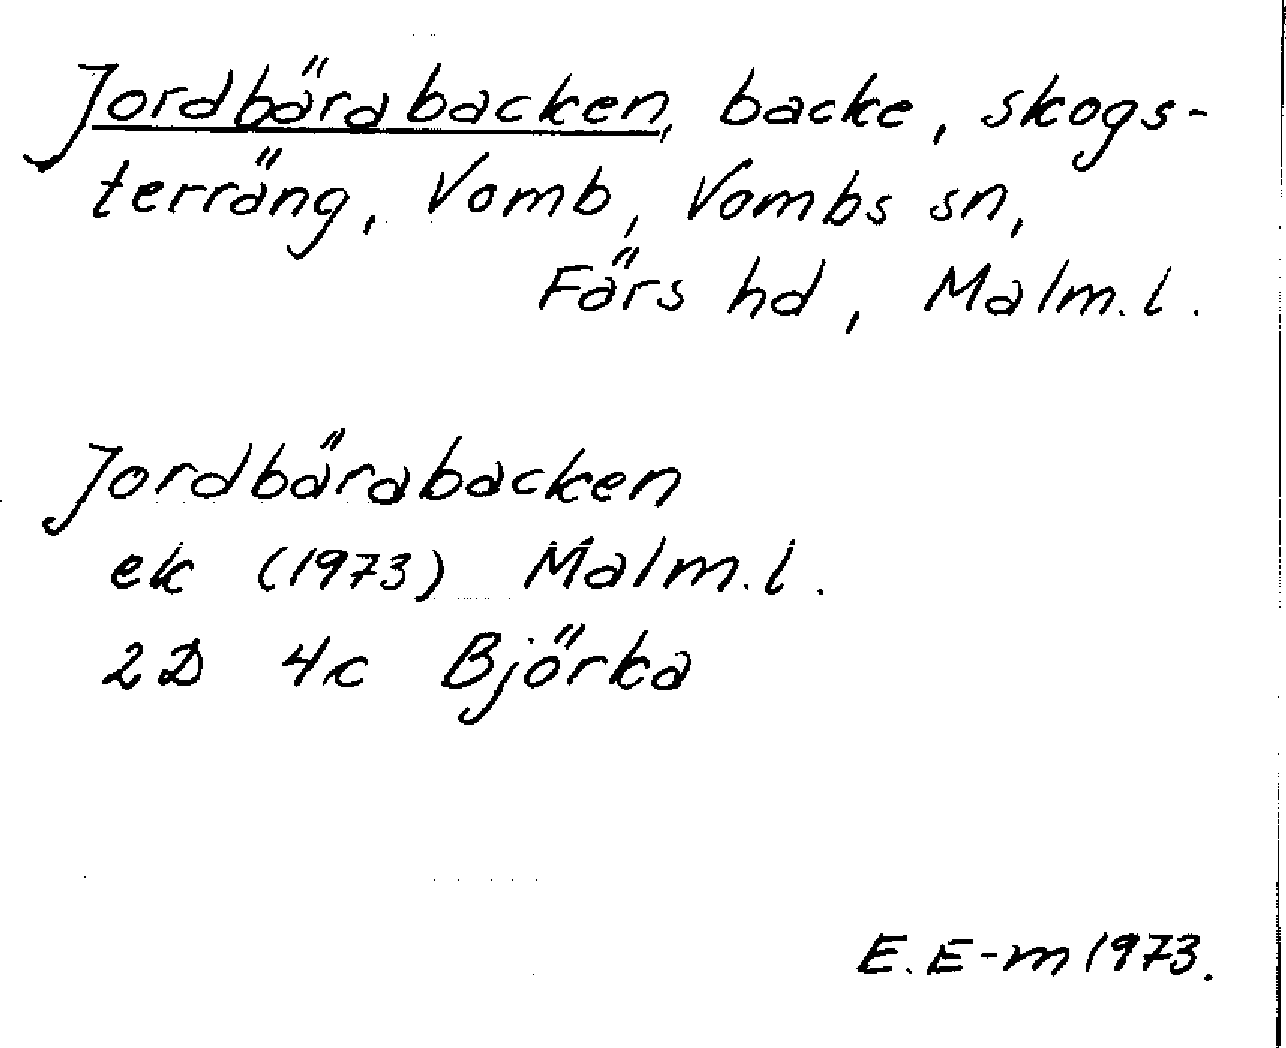 Jordbärabacken, backe, skogs-
terräng, Vomb, Vombs sn,
Färs hd, Malm.l.
Jordbärabacken
ek (1973) Malm.l.
2D 4c Björka
E.E-m 1973.